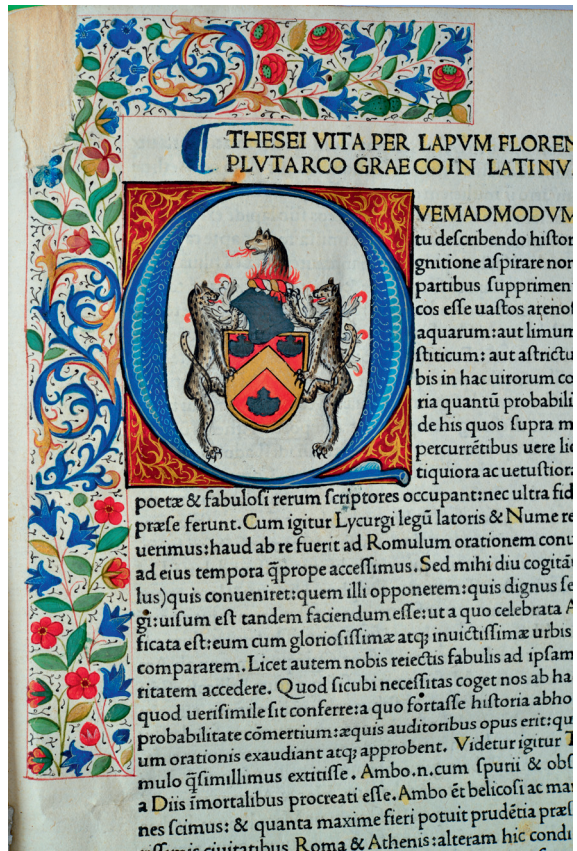 THESEI VITA PER LAPVM FLOREN
PLVTARCO GRAECO IN LATINV
QVEMADMODVM
tu describendo histor
gnitione aspirare non
partibus supprimen
cos esse uastos arenos
aquarum: aut limum
stiticum: aut astrictu
bis in hac uirorum co
ria quantū probabili
de his quos supra m
percurrētibus uere lic
tiquiora ac uetustiora
poetæ & fabulosi rerum scriptores occupant: nec ultra fid
præse ferunt. Cum igitur Lycurgi legū latoris & Nume re
uerimus: haud ab re fuerit ad Romulum orationem conu
ad eius tempora q̄prope accessimus. Sed mihi diu cogitā
lus) quis conueniret: quem illi opponerem: quis dignus se
gi: uisum est tandem faciendum esse: ut a quo celebrata A
ficata est: eum cum gloriosissimæ atq; inuictissimæ urbis
compararem. Licet autem nobis reiectis fabulis ad ipsam
ritatem accedere. Quod sicubi necessitas coget nos ab ha
quod uerisimile sit conferre: a quo fortasse historia abho
probabilitate cōmertium: æquis auditoribus opus erit: qu
um orationis exaudiant atq; approbent. Videtur igitur T
mulo q̄simillimus extitisse. Ambo.n.cum spurii & obs
a Diis īmortalibus procreati esse. Ambo ēt belicosi ac ma
nes scimus: & quanta maxime fieri potuit prudētia præs
ciuitatibus Roma & Athenis: alteram hic condi